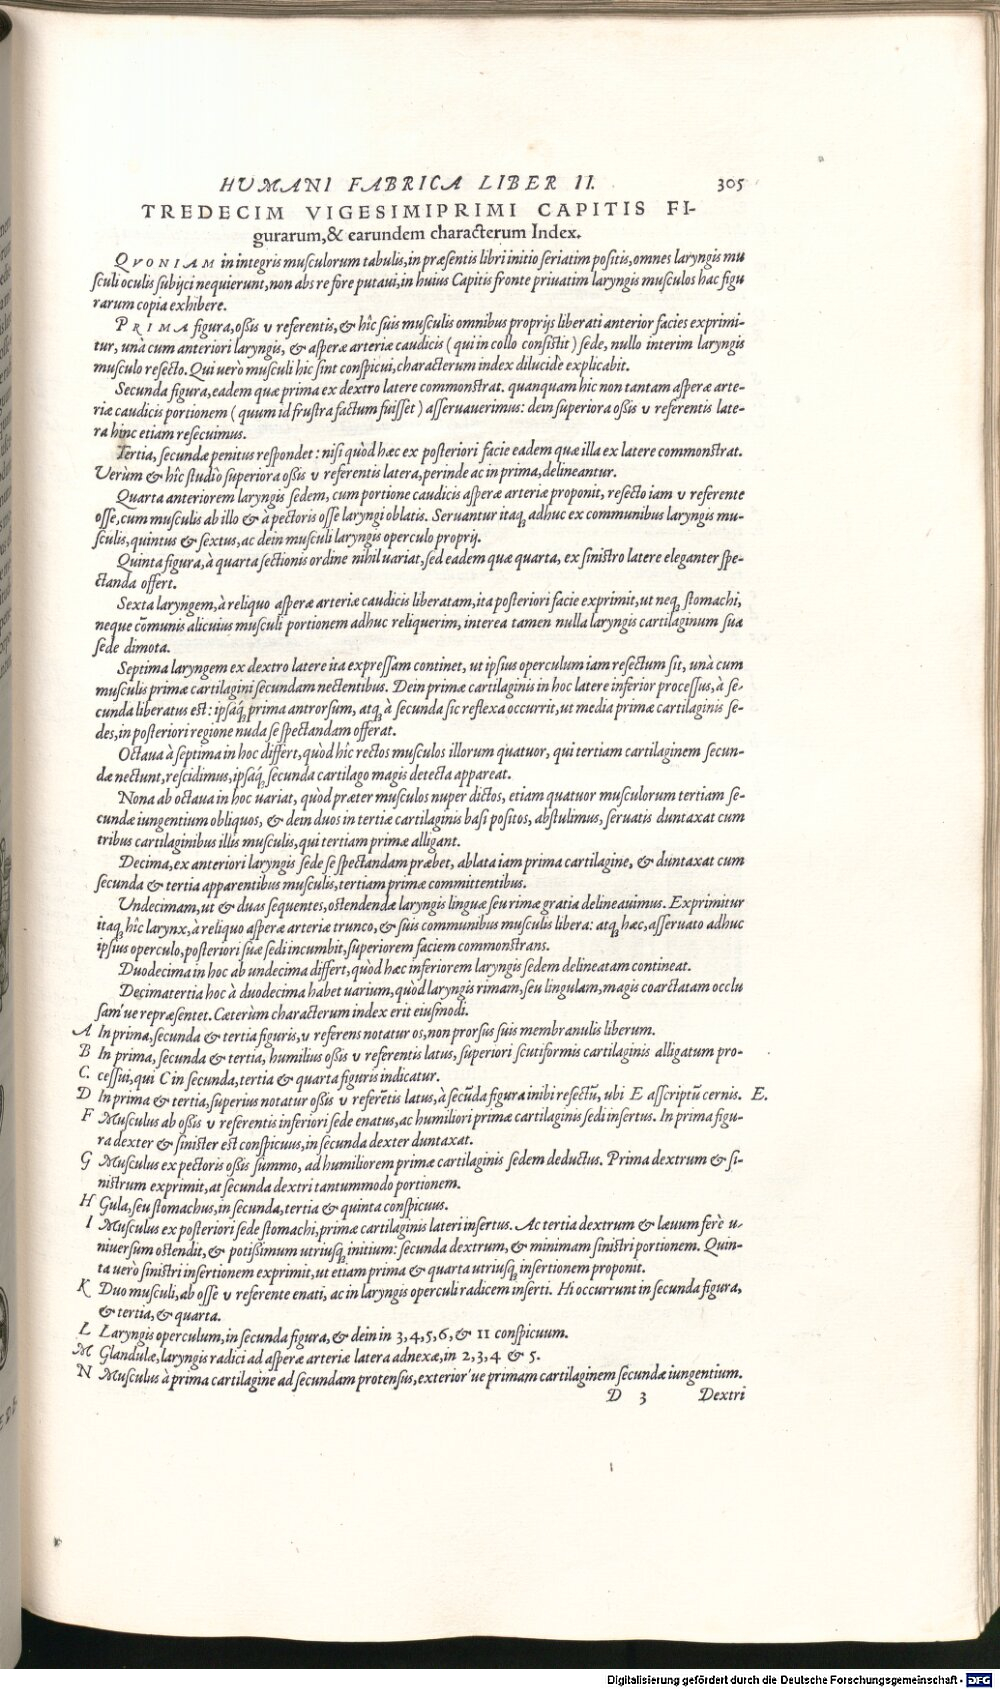 HVMANI FABRICA LIBER II. 305
TREDECIM VIGESIMIPRIMI CAPITIS FI-
gurarum, & earundem characterum Index.
QVONIAM in integris musculorum tabulis, in præsentis libri initio seriatim positis, omnes laryngis mu
sculi oculis subijci nequierunt, non abs re fore putaui, in huius Capitis fronte priuatim laryngis musculos hac figu
rarum copia exhibere.
PRIMA figura, ossis υ referentis, & hîc suis musculis omnibus proprijs liberati anterior facies exprimi-
tur, unà cum anteriori laryngis, & asperæ arteriæ caudicis ( qui in collo consistit ) sede, nullo interim laryngis
musculo resecto. Qui uerò musculi hic sint conspicui, characterum index dilucidè explicabit.
Secunda figura, eadem quæ prima ex dextro latere commonstrat. quanquam hic non tantam asperæ arte-
riæ caudicis portionem ( quum id frustra factum fuisset ) asseruauerimus: dein superiora ossis υ referentis late-
ra hinc etiam resecuimus.
Tertia, secundæ penitus respondet: nisi quòd hæc ex posteriori facie eadem quæ illa ex latere commonstrat.
Verùm & hîc studiò superiora ossis υ referentis latera, perinde ac in prima, delineantur.
Quarta anteriorem laryngis sedem, cum portione caudicis asperæ arteriæ proponit, resecto iam υ referente
osse, cum musculis ab illo & à pectoris osse laryngi oblatis. Seruantur itaq; adhuc ex communibus laryngis mu-
sculis, quintus & sextus, ac dein musculi laryngis operculo proprij.
Quinta figura, à quarta sectionis ordine nihil uariat, sed eadem quæ quarta, ex sinistro latere eleganter spe-
ctanda offert.
Sexta laryngem, à reliquo asperæ arteriæ caudicis liberatam, ita posteriori facie exprimit, ut neq; stomachi,
neque cōmunis alicuius musculi portionem adhuc reliquerim, interea tamen nulla laryngis cartilaginum sua
sede dimota.
Septima laryngem ex dextro latere ita expressam continet, ut ipsius operculum iam resectum sit, unà cum
musculis primæ cartilagini secundam nectentibus. Dein primæ cartilaginis in hoc latere inferior processus, à se-
cunda liberatus est: ipsáq; prima antrorsum, atq; à secunda sic reflexa occurrit, ut media primæ cartilaginis se-
des, in posteriori regione nuda se spectandam offerat.
Octaua à septima in hoc differt, quòd hîc rectos musculos illorum quatuor, qui tertiam cartilaginem secun-
dæ nectunt, rescidimus, ipsáq; secunda cartilago magis detecta appareat.
Nona ab octaua in hoc uariat, quòd præter musculos nuper dictos, etiam quatuor musculorum tertiam se-
cundæ iungentium obliquos, & dein duos in tertiæ cartilaginis basi positos, abstulimus, seruatis duntaxat cum
tribus cartilaginibus illis musculis, qui tertiam primæ alligant.
Decima, ex anteriori laryngis sede se spectandam præbet, ablata iam prima cartilagine, & duntaxat cum
secunda & tertia apparentibus musculis, tertiam primæ committentibus.
Vndecimam, ut & duas sequentes, ostendendæ laryngis linguæ seu rimæ gratia delineauimus. Exprimitur
itaq; hîc larynx, à reliquo asperæ arteriæ trunco, & suis communibus musculis libera: atq; hæc, asseruato adhuc
ipsius operculo, posteriori suæ sedi incumbit, superiorem faciem commonstrans.
Duodecima in hoc ab undecima differt, quòd hæc inferiorem laryngis sedem delineatam contineat.
Decimatertia hoc à duodecima habet uarium, quòd laryngis rimam, seu lingulam, magis coarctatam occlu
sam'ue repræsentet. Cæterùm characterum index erit eiusmodi.
A In prima, secunda & tertia figuris, υ referens notatur os, non prorsus suis membranulis liberum.
B In prima, secunda & tertia, humilius ossis υ referentis latus, superiori scutiformis cartilaginis alligatum pro-
C. cessui, qui C in secunda, tertia & quarta figuris indicatur.
D In prima & tertia, superius notatur ossis υ referētis latus, à secūda figura inibi resectū, ubi E asscriptū cernis. E.
F Musculus ab ossis υ referentis inferiori sede enatus, ac humiliori primæ cartilaginis sedi insertus. In prima figu-
ra dexter & sinister est conspicuus, in secunda dexter duntaxat.
G Musculus ex pectoris ossis summo, ad humiliorem primæ cartilaginis sedem deductus. Prima dextrum & si-
nistrum exprimit, at secunda dextri tantummodo portionem.
H Gula, seu stomachus, in secunda, tertia & quinta conspicuus.
I Musculus ex posteriori sede stomachi, primæ cartilaginis lateri insertus. Ac tertia dextrum & læuum ferè u-
niuersum ostendit, & potissimum utriusq; initium: secunda dextrum, & minimam sinistri portionem. Quin-
ta uerò sinistri insertionem exprimit, ut etiam prima & quarta utriusq; insertionem proponit.
K Duo musculi, ab osse υ referente enati, ac in laryngis operculi radicem inserti. Hi occurrunt in secunda figura,
& tertia, & quarta.
L Laryngis operculum, in secunda figura, & dein in 3, 4, 5, 6, & 11 conspicuum.
M Glandulæ, laryngis radici ad asperæ arteriæ latera adnexæ, in 2, 3, 4 & 5.
N Musculus à prima cartilagine ad secundam protensus, exterior'ue primam cartilaginem secundæ iungentium.
D 3 Dextri
Digitalisierung gefördert durch die Deutsche Forschungsgemeinschaft - DFG